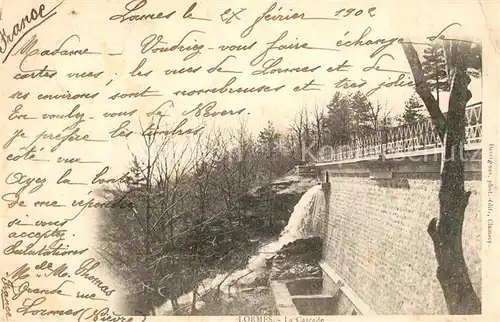 France
Lormes le 27 février 1902
Madame
Voudriez-vous faire échange
cartes vues, les vues de Lormes et de
ses environs sont nombreuses et très jolies
En voulez vous de Nevers.
je préfère les timbres
côté vue
Ayez la bonté
de me répondre
si vous
acceptez.
Salutations
M. Thomas
Grande rue
Lormes (Nièvre)
France
LORMES. - La Cascade
phot.-édit.,